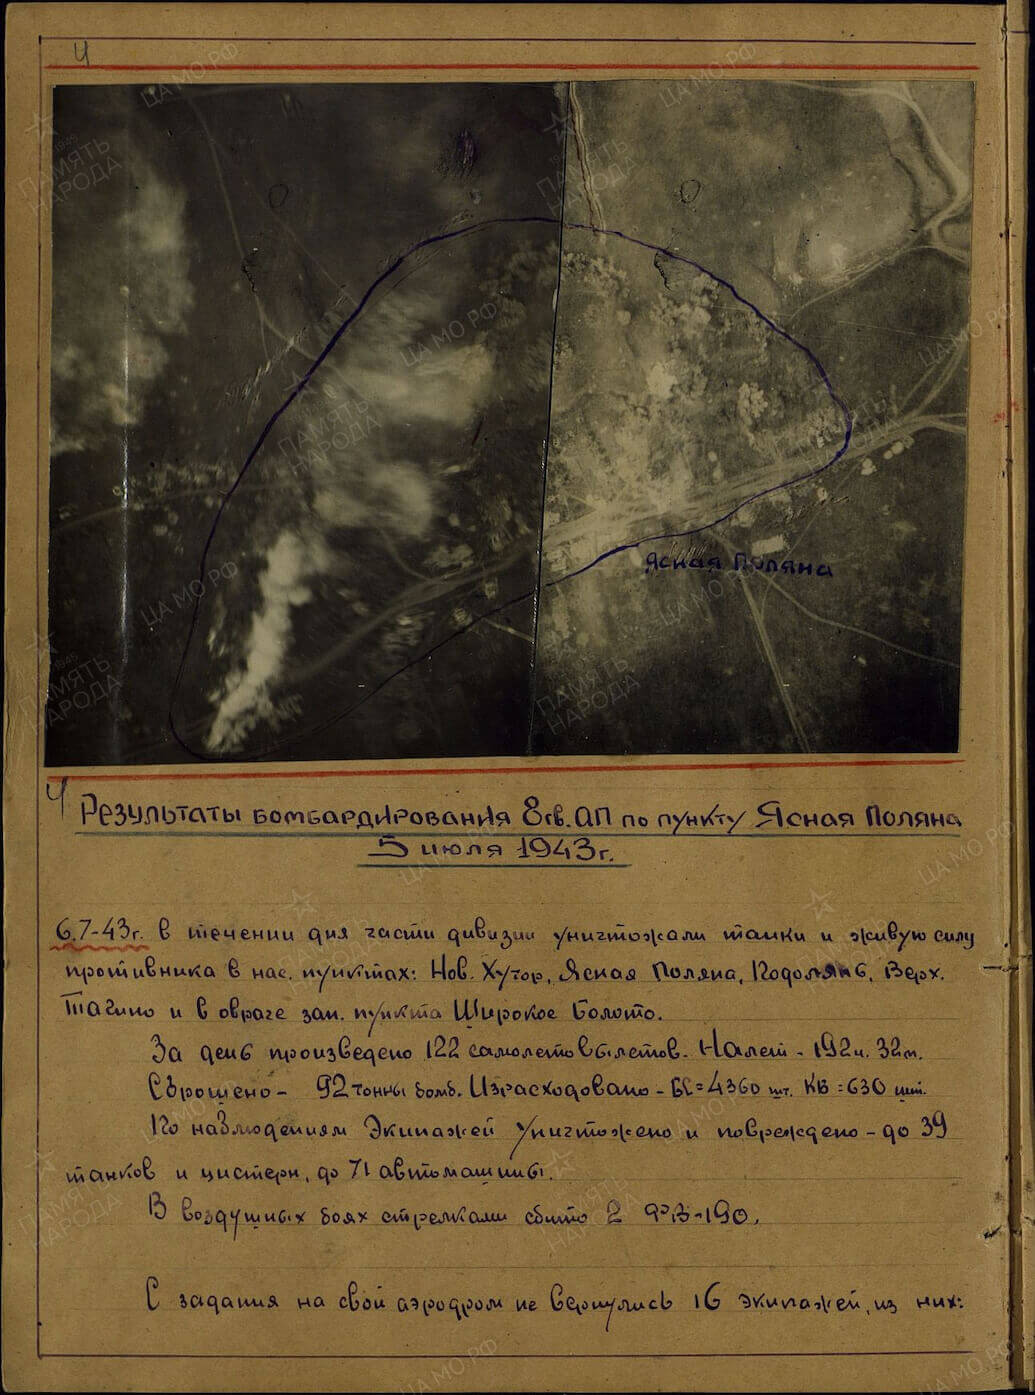 4
Ясная Поляна
4 Результаты бомбардирования 8 гв. АП по пункту Ясная Поляна
5 июля 1943г.
6.7-43г. в течении дня части дивизии уничтожали танки и живую силу
противника в нас. пунктах: Нов. Хутор, Ясная Поляна, Подолянь, Верх.
Тагино и в овраге зап. пункта Широкое Болото.
За день произведено 122 самолетовылетов. Налет - 192ч. 32м.
Сброшено - 92 тонны бомб. Израсходовано - БС=4360 шт. КВ=630 шт.
По наблюдениям Экипажей уничтожено и повреждено - до 39
танков и цистерн, до 71 автомашины.
В воздушных боях стрелками сбито 2 ФВ-190.
С задания на свой аэродром не вернулись 16 экипажей, из них:
ЦА МО РФ
ПАМЯТЬ
НАРОДА